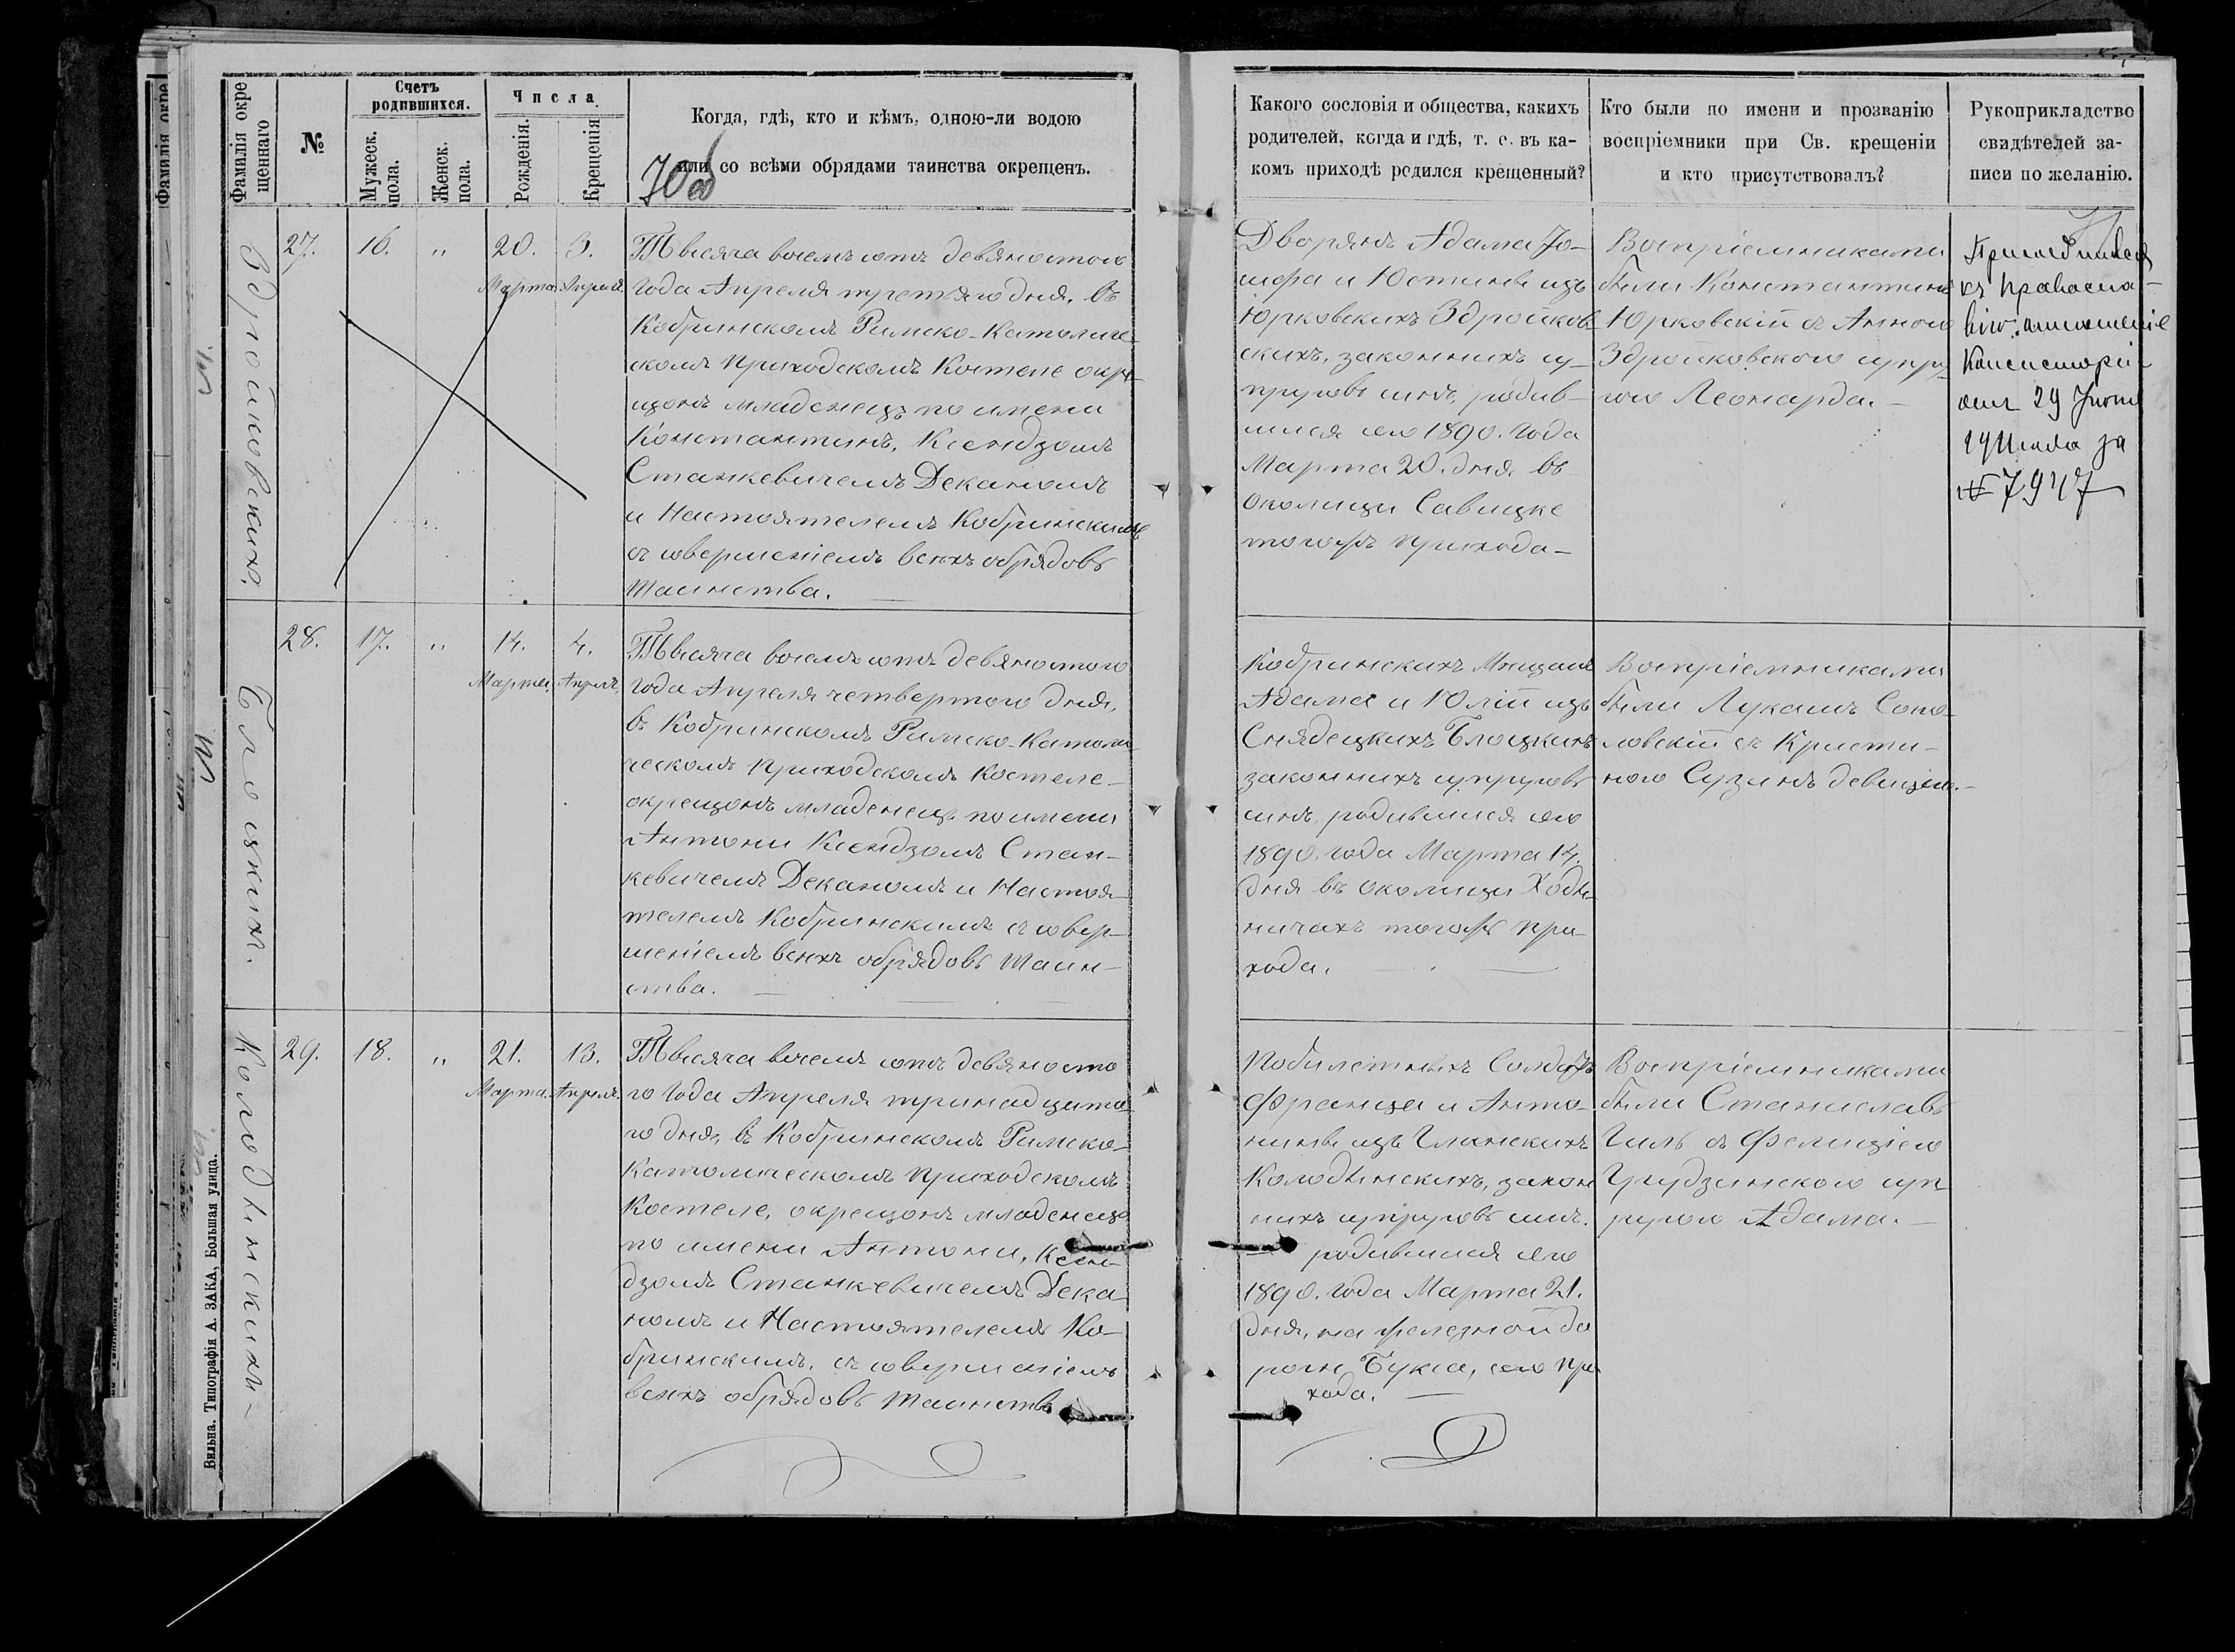 Фамилія окре
щеннаго
№
Счетъ
родившихся.
Мужеск.
пола.
Женск.
пола.
Числа
Рожденія.
Крещенія
Когда, гдѣ, кто и кѣмъ, одною-ли водою
или со всѣми обрядами таинства окрещенъ.
Здройковскихъ.
27.
16.
"
20.
Марта
3.
Апреля.
Тысяча восемъ сотъ девяностого
года Апреля третяго дня, въ
Кобринскомъ Римско-Католиче-
скомъ приходскомъ Костеле окре-
щонъ младенецъ по имени
Константинъ, Ксендзомъ
Станкевичемъ Деканомъ
и Настоятелемъ Кобринскимъ
съ совершеніемъ всѣхъ обрядовъ
Таинства.
28.
17.
"
14.
Марта
4.
Апреля
Тысяча восемъ сотъ девяностого
года Апреля четвертого дня,
въ Кобринскомъ Римско-Католи-
ческомъ приходскомъ Костеле
окрещонъ младенецъ по имени
Антони Ксендзомъ Стан-
кевичемъ Деканомъ и Настоя-
телемъ Кобринскимъ съ совер-
шеніемъ всѣхъ обрядовъ Таин-
ства.
Колодѣнскихъ
29.
18.
"
21.
Марта.
13.
Апреля.
Тысяча восемъ сотъ девяносто
го года Апреля тринадцато-
го дня, въ Кобринскомъ Римско-
Католическомъ приходскомъ
Костеле, окрещонъ младенецъ
по имени Антони, Ксен-
дзомъ Станкевичемъ Дека-
номъ и Настоятелемъ Ко-
бринскимъ, съ совершеніемъ
всѣхъ обрядовъ Таинства
Вильна. Типографія А. ЗАКА, Большая улица.
Какого сословія и общества, какихъ
родителей, когда и гдѣ, т. е. въ ка-
комъ приходѣ родился крещенный?
Кто были по имени и прозванію
воспріемники при Св. крещеніи
и кто присутствовалъ?
Рукоприкладство
свидѣтелей за-
писи по желанію.
Дворянъ Адама Іо-
сифа и Юстины изъ
Юрковскихъ Здройков-
скихъ, законныхъ су-
пруговъ сынъ, родив-
шися сего 1890. года
Марта 20. дня въ
околици Савицке
тогожъ прихода
Воспріемниками
были Константинъ
Юрковскій съ Анною
Здройковскою супру-
гою Леонарда.
Присоединился
къ Правосла-
вію. отношеніе
Консисторіи
отъ 29 Іюня
за
№ 7947
Кобринскихъ Мѣщанъ
Адама и Юліи изъ
Снядецкихъ Блоцкихъ
законныхъ супруговъ
сынъ, родившися сего
1890. года Марта 14.
дня въ околици Ходы-
ничахъ тогожъ при-
хода.
Воспріемниками
были Лукашъ Соко-
ловскій съ Кристи-
ною Сузинъ девицею.
Побилетныхъ Солдатъ
Франца и Анто-
нины изъ
Колодѣнскихъ, закон
ныхъ супруговъ сынъ.
родившися сего
1890. года Марта 21.
дня, на железной до
роги сего при
хода.
Воспріемниками
были Станиславъ
Гиль съ Фелиціею
Грудзинскою суп
ругою Адама.